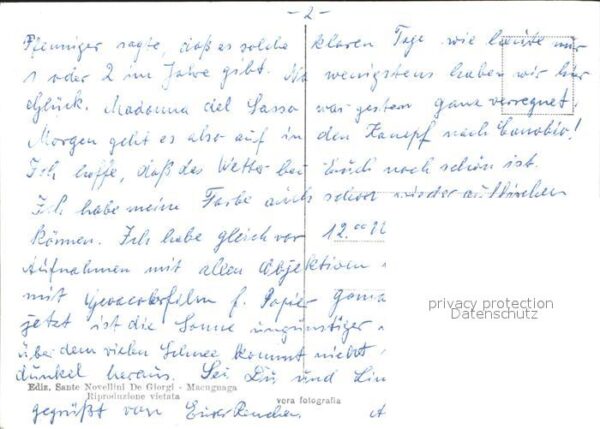 - 2 -
Pfenniger sagte, daß es solche klaren Tage wie heute nur
1 oder 2 im Jahre gibt. Na wenigstens haben wir hier
Glück. Madonna del Sasso war gestern ganz verregnet.
Morgen geht es also auf in den Kampf nach Canobio!
Ich hoffe, daß das Wetter bei Euch noch schön ist.
Ich habe meine Farbe auch schon wieder auffrischen
können. Ich habe gleich vor 12.00
Aufnahmen mit allen Objektiven
mit Gevacolorfilm f. Papier gema
jetzt ist die Sonne ungünstiger
über dem vielen Schnee kommt nicht
dunkel heraus. Sei und
Ediz. Sante Novellini De Giorgi - Macugnaga
Riproduzione vietata
vera fotografia
gegrüßt von
privacy protection
Datenschutz